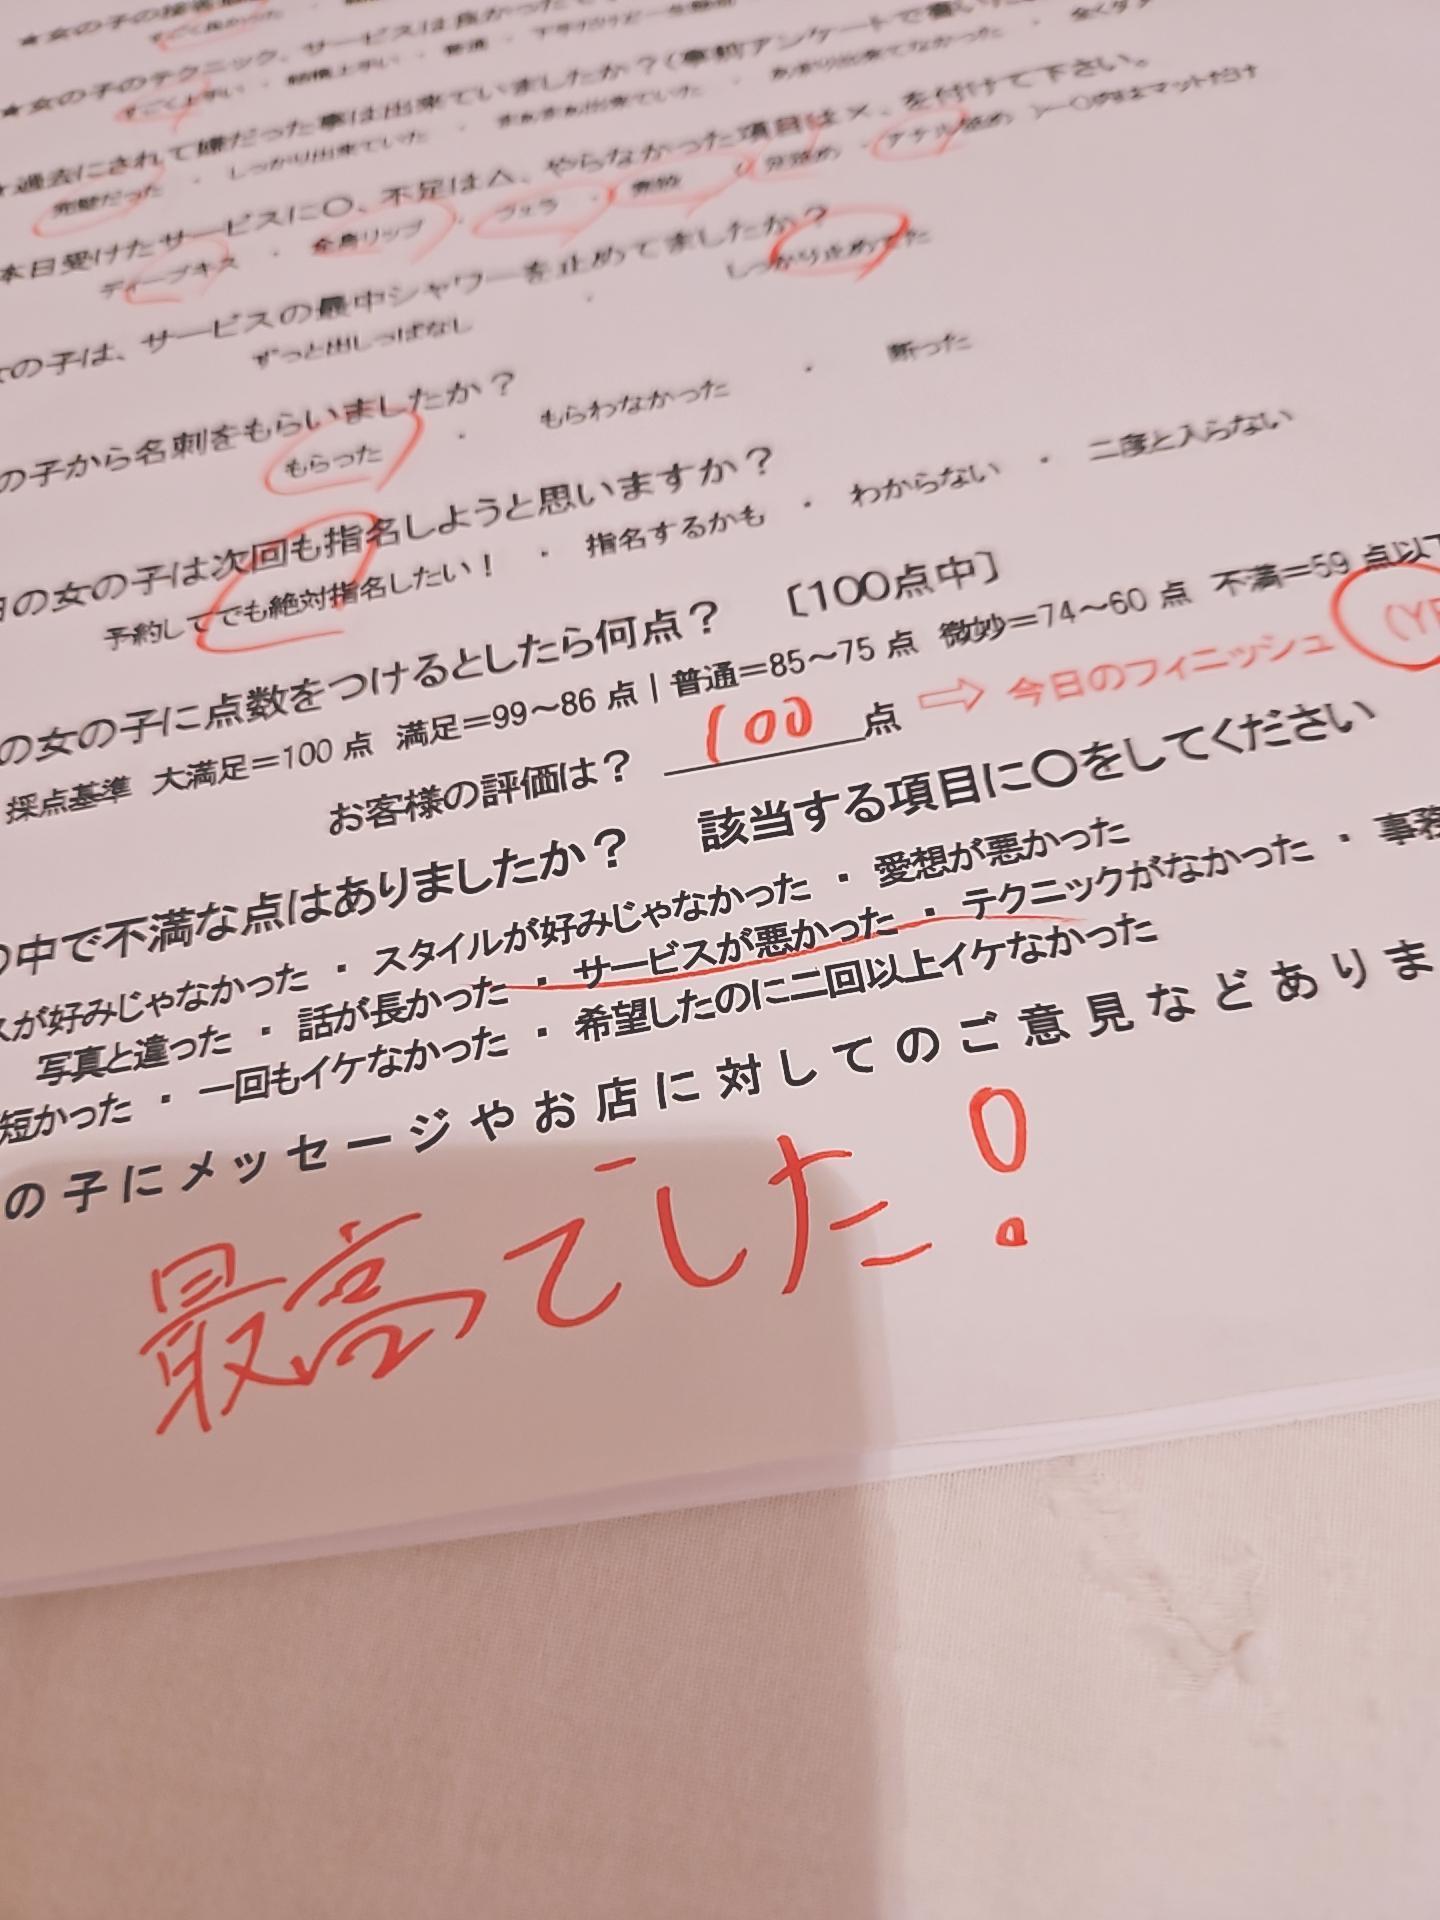 ★女の子のテクニック、サービスは良かったで
すごく上手い ・ 結構上手い ・ 普通 ・ 下手だけど一生懸命
過去にされて嫌だった事は出来ていましたか？(事前アンケートで書いた
完璧だった ・ しっかり出来ていた ・ まあまあ出来ていた ・ あまり出来てなかった ・ 全くダメ
本日受けたサービスに〇、不足は△、やらなかった項目は×、を付けて下さい。
ディープキス ・ 全身リップ ・ フェラ ・ 素股
の子は、サービスの最中シャワーを止めてましたか？
ずっと出しっぱなし ・ しっかり止めてた
の子から名刺をもらいましたか？
もらった ・ もらわなかった ・ 断った
日の女の子は次回も指名しようと思いますか？
予約してでも絶対指名したい！ ・ 指名するかも ・ わからない ・ 二度と入らない
の女の子に点数をつけるとしたら何点？ [100点中]
採点基準 大満足＝100 点 満足＝99～86 点 | 普通＝85～75 点 微妙＝74～60 点 不満＝59 点以下
お客様の評価は？ 100 点 ⇨ 今日のフィニッシュ
の中で不満な点はありましたか？ 該当する項目に〇をしてください
が好みじゃなかった ・ スタイルが好みじゃなかった ・ 愛想が悪かった
写真と違った ・ 話が長かった ・ サービスが悪かった ・ テクニックがなかった ・ 事務
短かった ・ 一回もイケなかった ・ 希望したのに二回以上イケなかった
の子にメッセージやお店に対してのご意見などありま
最高でした！